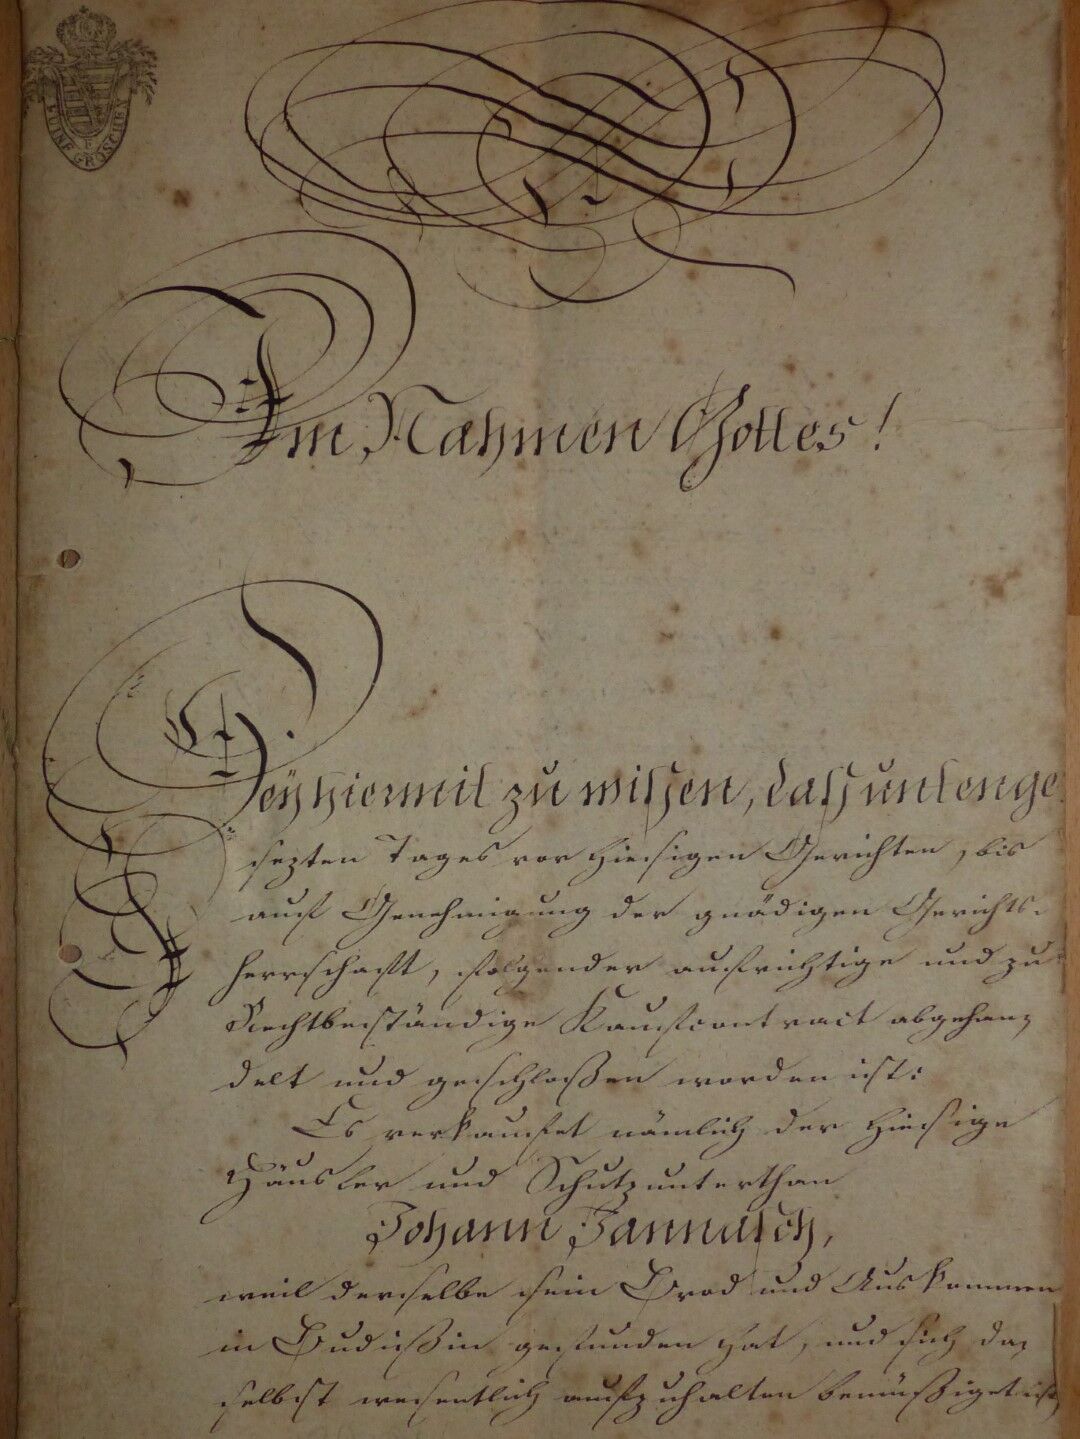 FÜNF GROSCHEN
Im Nahmen Gottes!
Seÿ hiermit zu wißen, daß untenge
sezten Tages vor hiesigen Gerichten, bis
auf Genehmigung der gnädigen Gerichts-
herrschafft, folgender aufrichtige und zu
Rechtbeständige Kaufcontract abgehan-
delt und geschloßen worden ist:
Es verkaufet nämlich der hiesige
Häusler und Schutzunterthan
Johann Jannasch,
weil derselbe sein Brod und Auskommen
in Budißin gefunden hat, und sich da-
selbst wesentlich aufzuhalten bemüßiget ist